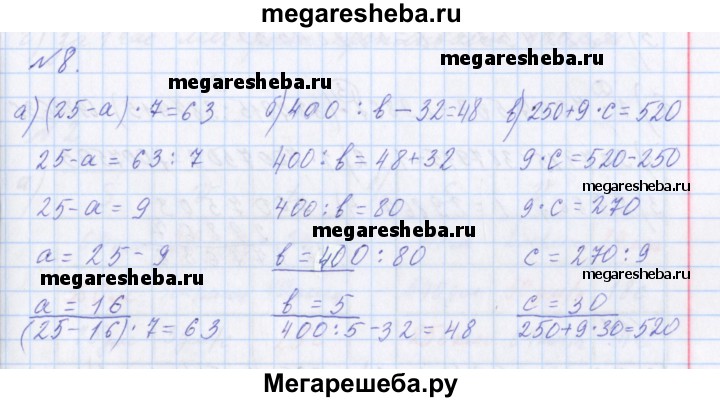 megaresheba.ru
№8.
megaresheba.ru
megaresheba.ru
а) (25-а) · 7=63
25-а = 63 : 7
25-а = 9
а = 25 - 9
megaresheba.ru
а = 16
(25-16) · 7 = 63
б) 400 : в - 32=48
400 : в = 48+32
400 : в = 80
megaresheba.ru
в = 400 : 80
в = 5
400 : 5 - 32 = 48
в) 250+9 · с = 520
9 · с = 520-250
megaresheba.ru
9 · с = 270
с = 270 : 9
megaresheba.ru
с = 30
250+9·30=520
Мегарешеба.ру